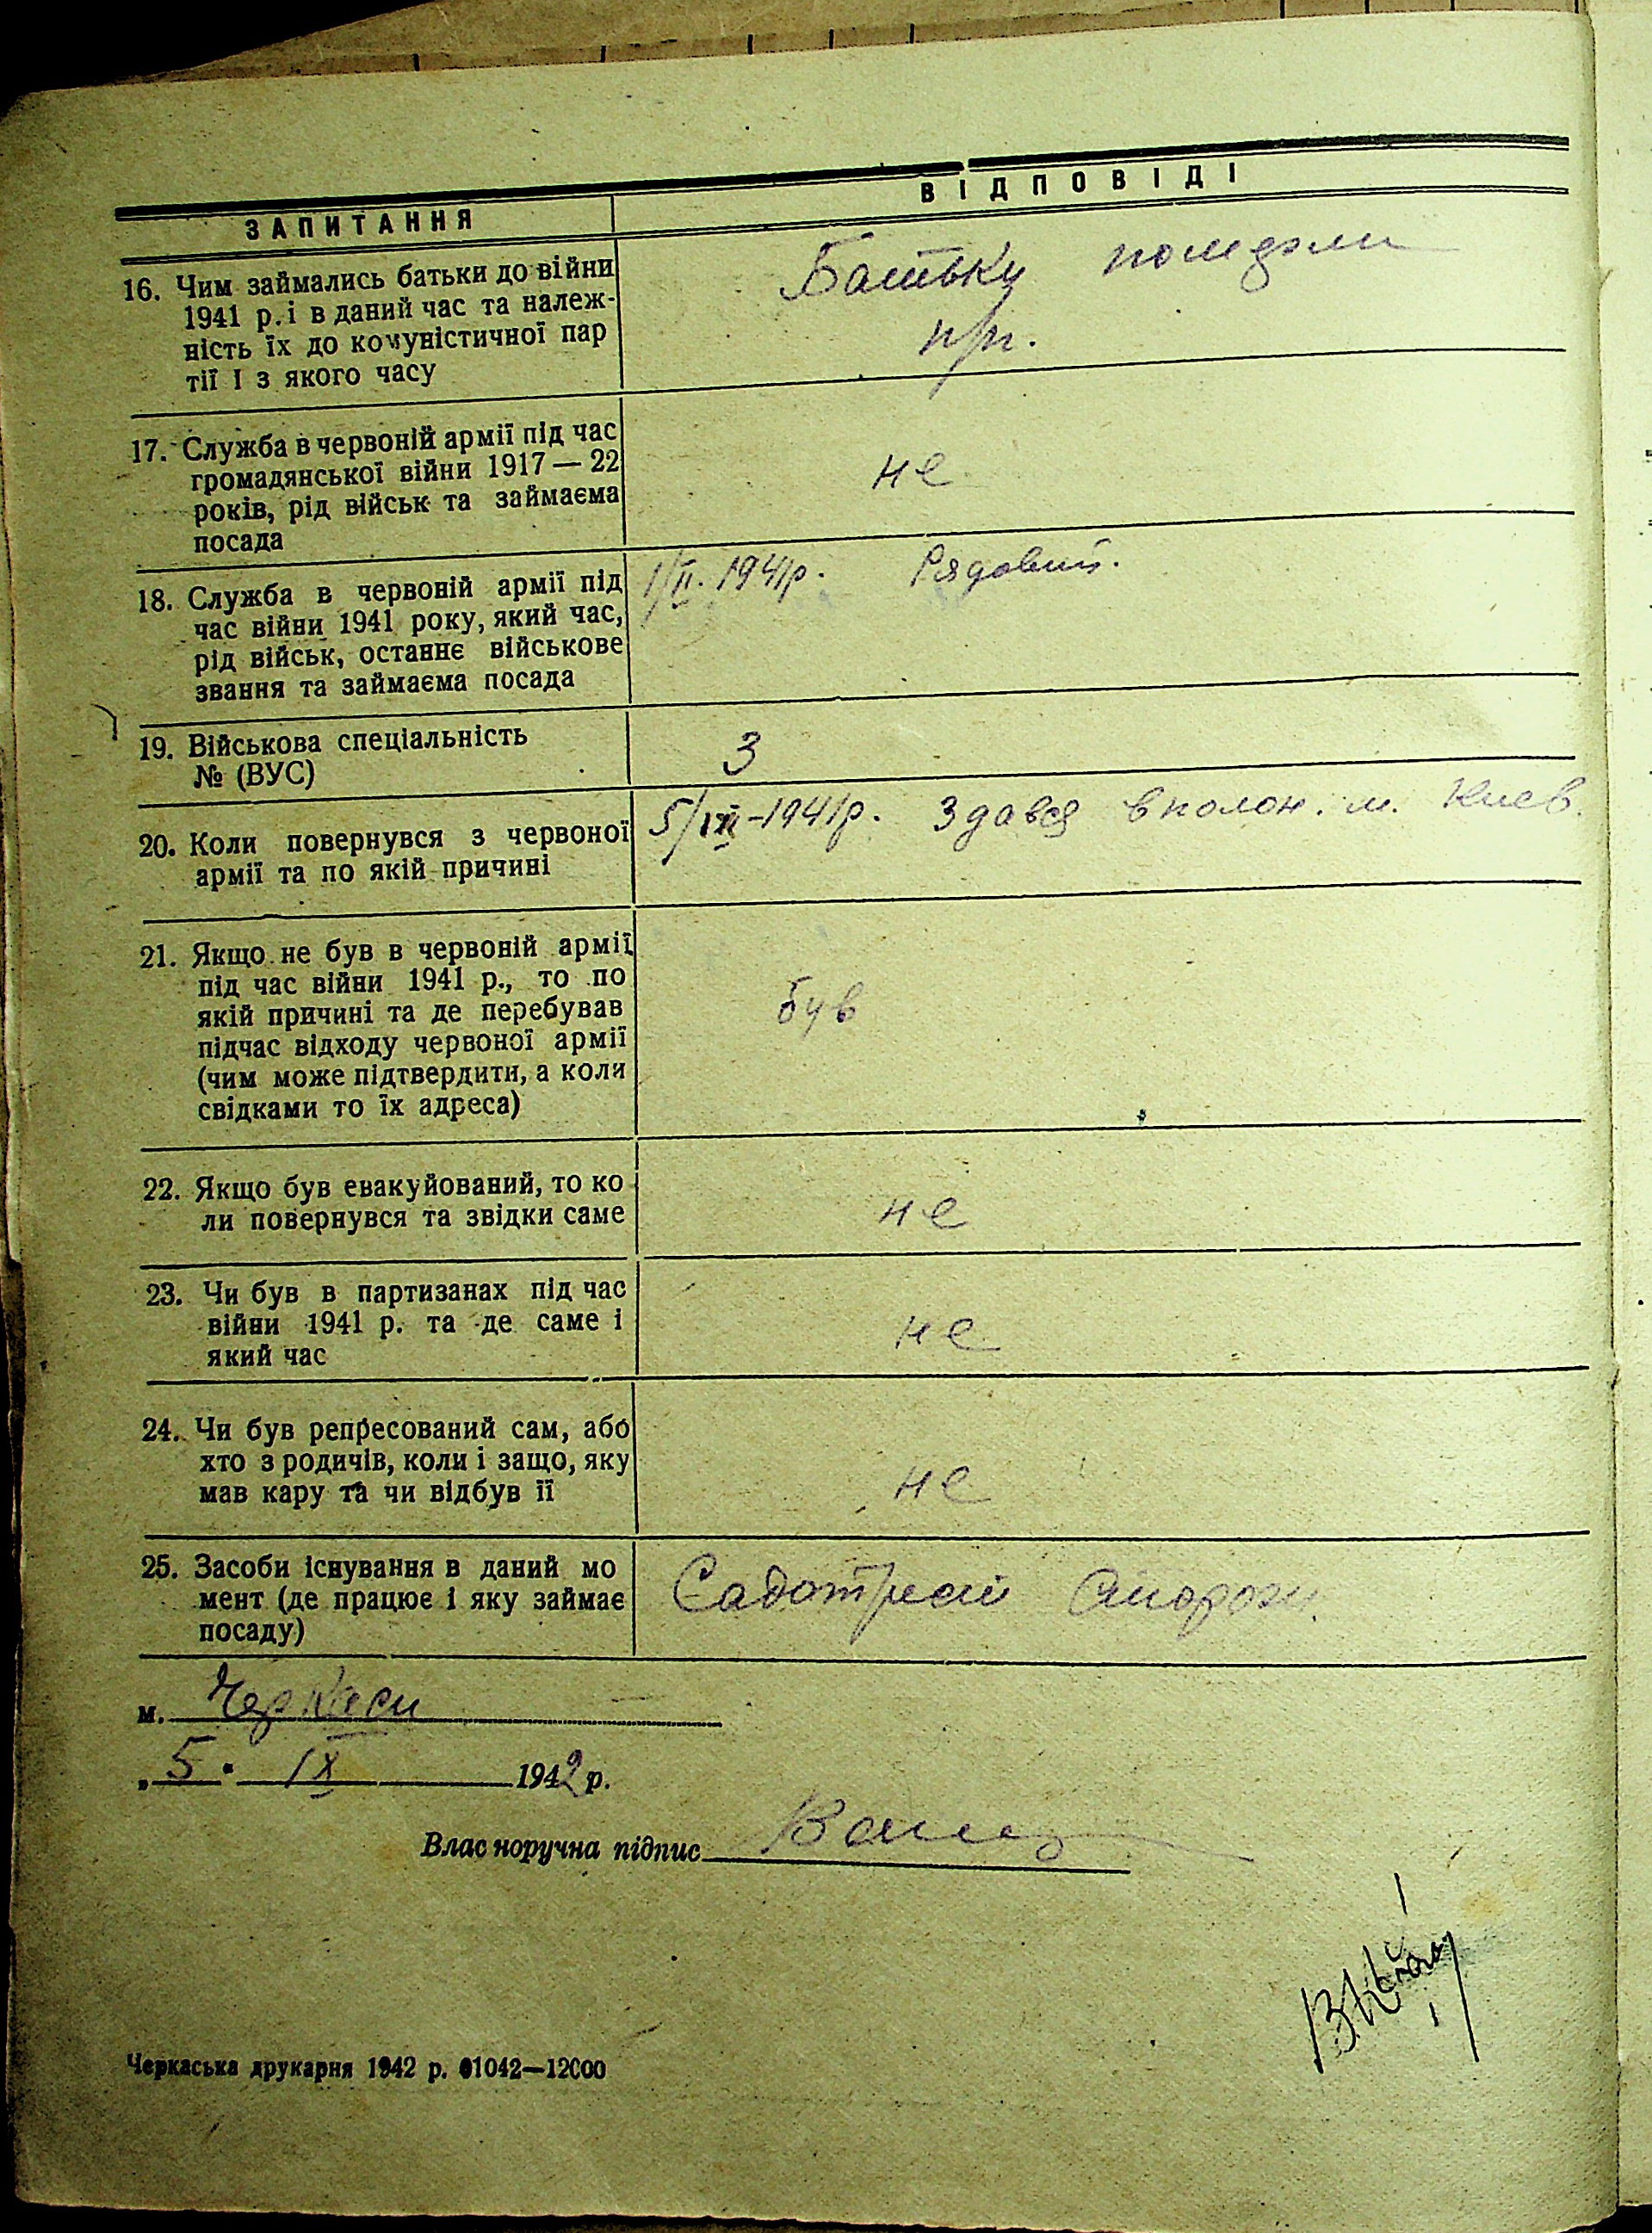 ЗАПИТАННЯ
ВІДПОВІДІ
16. Чим займались батьки до війни
1941 р. і в даний час та належ-
ність їх до комуністичної пар
тії І з якого часу
Батьки померли
п/п.
17. Служба в червоній армії під час
громадянської війни 1917 — 22
років, рід військ та займаєма
посада
не
18. Служба в червоній армії під
час війни 1941 року, який час,
рід військ, останнє військове
звання та займаєма посада
1/II. 1941р. Рядовий.
19. Військова спеціальність
№ (ВУС)
3
20. Коли повернувся з червоної
армії та по якій причині
-1941р. Здався в полон. м. Киев.
21. Якщо не був в червоній армії
під час війни 1941 р., то по
якій причині та де перебував
підчас відходу червоної армії
(чим може підтвердити, а коли
свідками то їх адреса)
був
22. Якщо був евакуйований, то ко
ли повернувся та звідки саме
не
23. Чи був в партизанах під час
війни 1941 р. та де саме і
який час
не
24. Чи був репресований сам, або
хто з родичів, коли і защо, яку
мав кару та чи відбув її
не
25. Засоби існування в даний мо
мент (де працює і яку займає
посаду)
Садотрест
м. Черкаси
„5" IX 1942 р.
Власноручна підпис
Черкаська друкарня 1942 р. 01042—12000